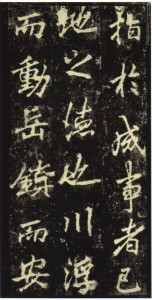 指於成事者已
地之德也川浮
而動岳鎮而安